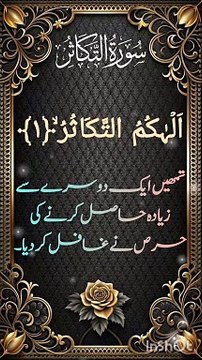 سُورَةُ التَّكَاثُر
اَلْهٰكُمُ التَّكَاثُرُۙ﴿۱﴾
تمھیں ایک دوسرے سے
زیادہ حاصل کرنے کی
حرص نے غافل کردیا۔
InShot